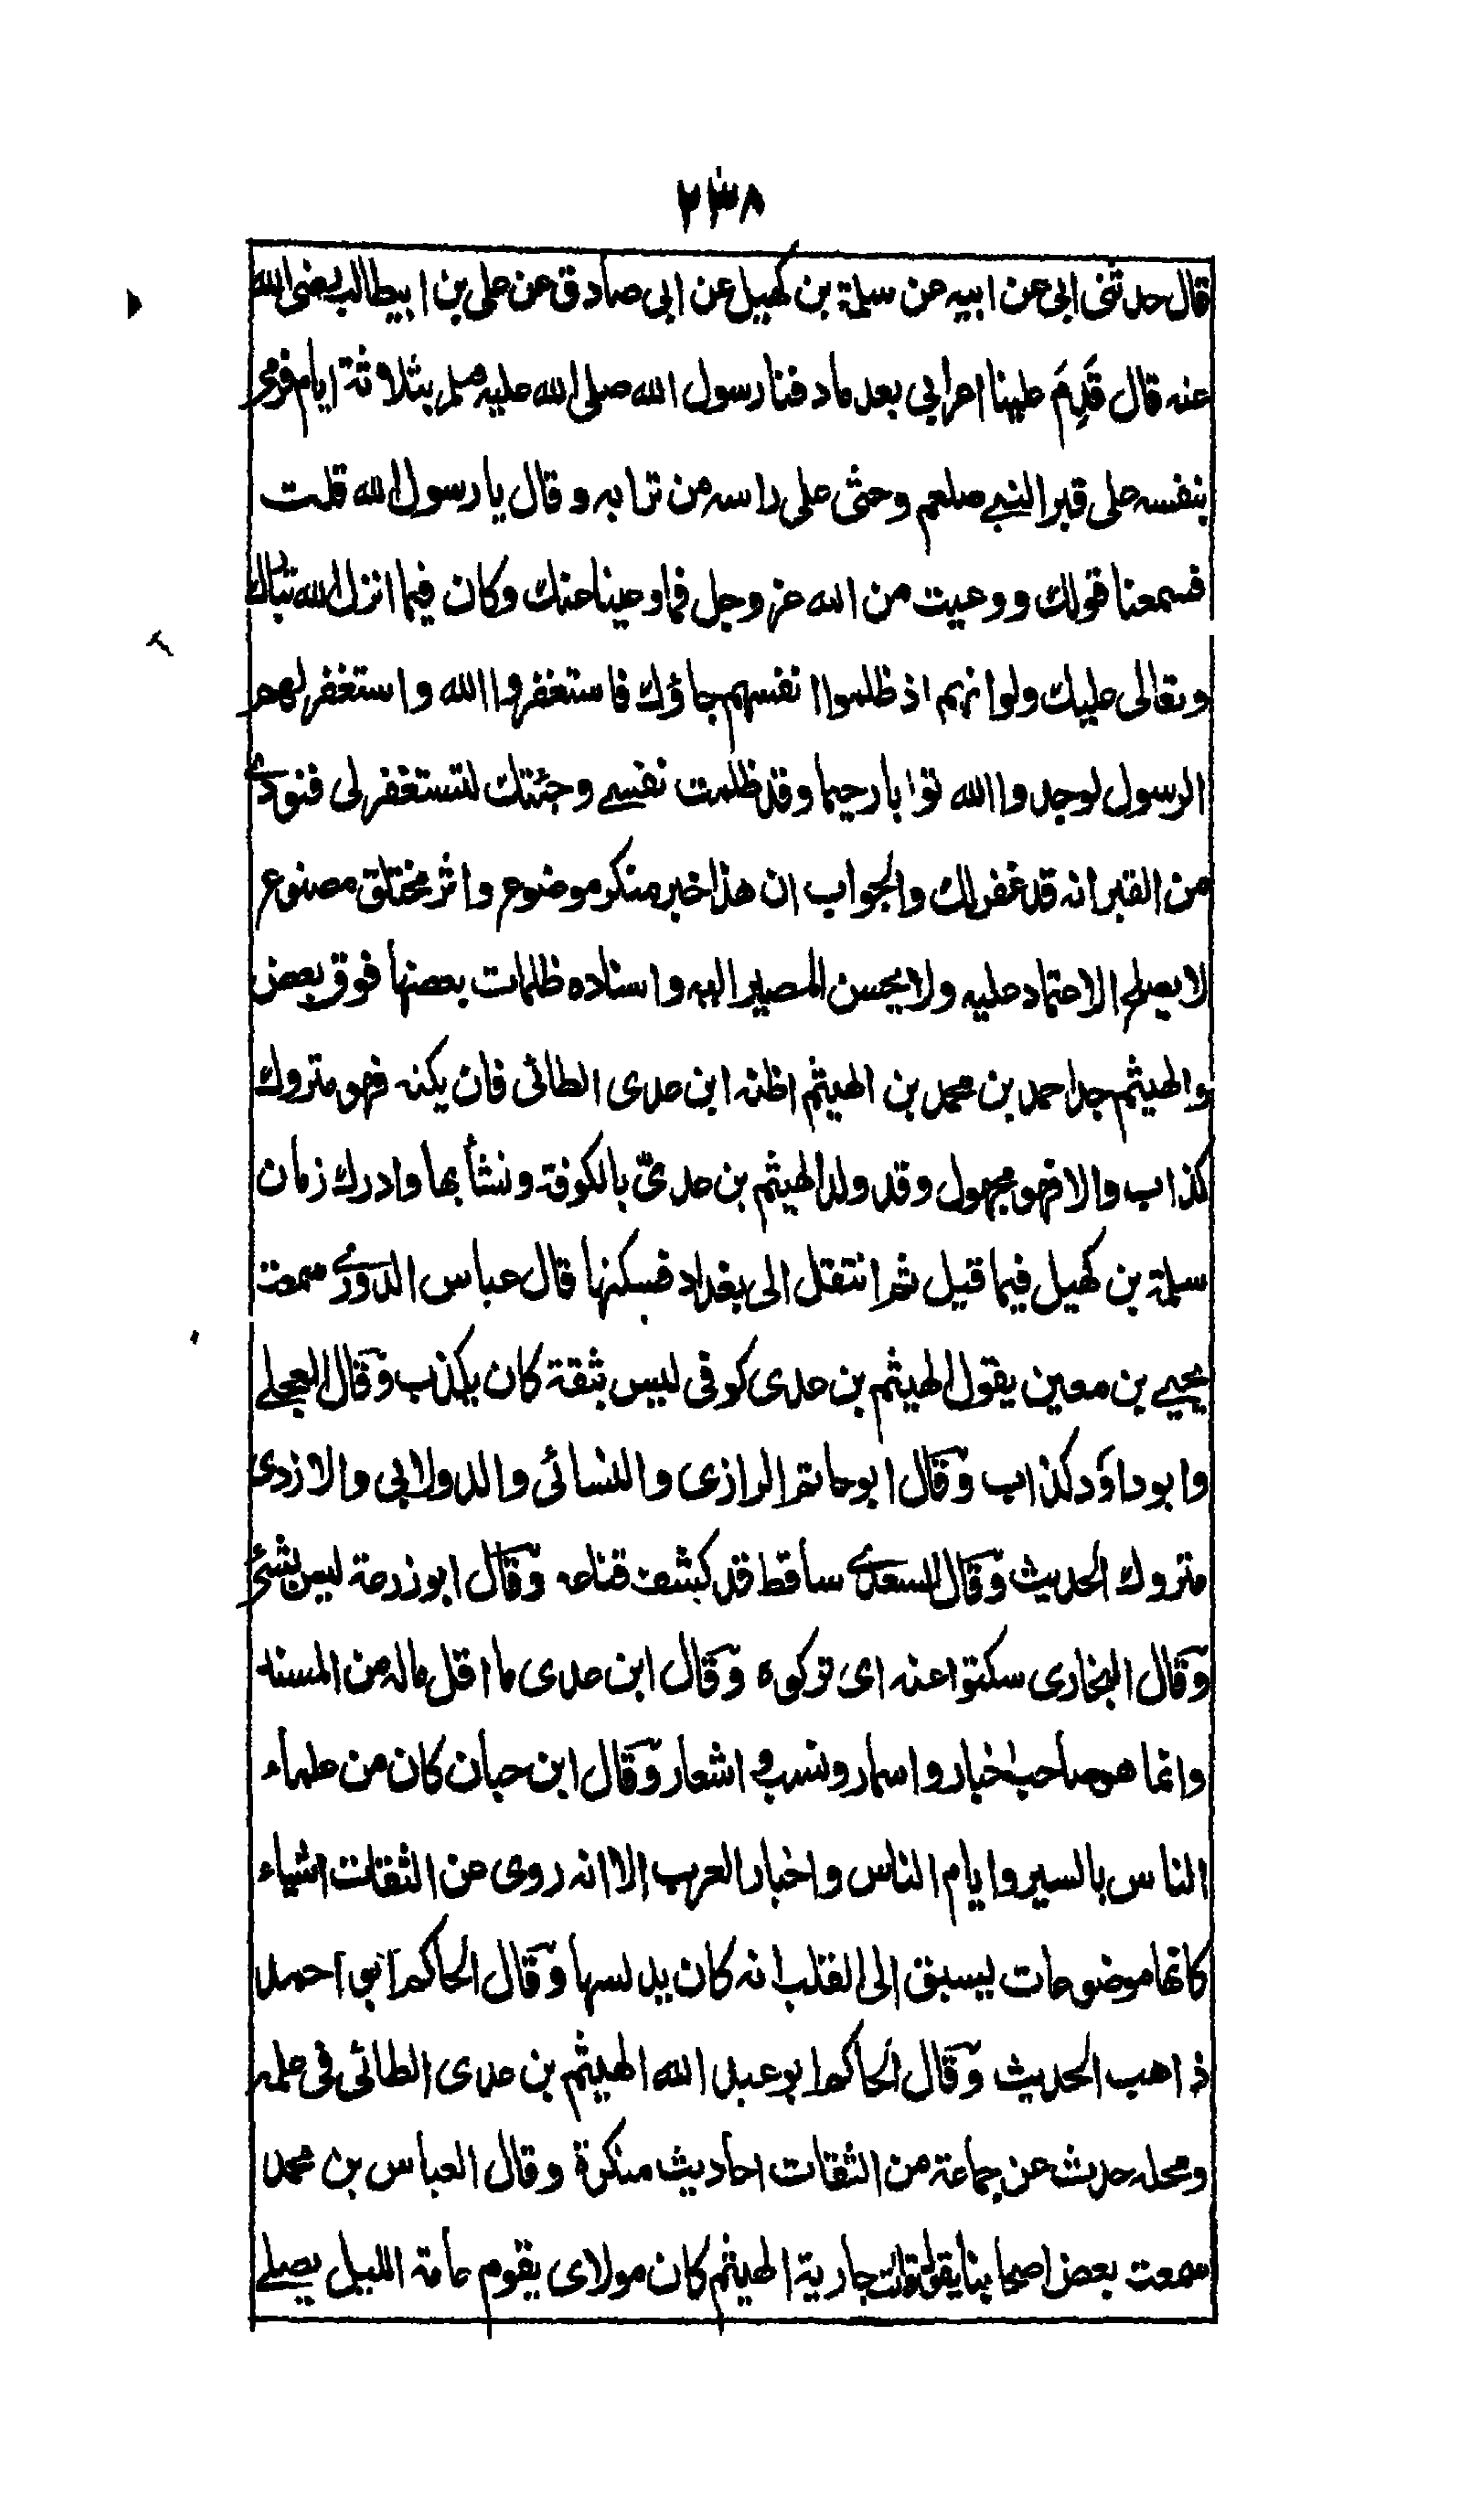 ٢٣٨
قال حدثنى ابى عن ابيه عن سلمة بن كهيل عن ابى صادق عن على بن ابيطالب رضى الله
عنه قال قَدِمَ علينا اعرابى بعد ما دفنا رسول الله صلى الله عليه وسلم بثلاثة ايام فرمى
بنفسه على قبر النبى صلعم وحثى على راسه من ترابه وقال يا رسول الله قلت
فسمعنا قولك ووعيت من الله عز وجل فما وعينا عنك وكان فيما انزل الله تبارك
وتعالى عليك ولو انهم اذ ظلموا انفسهم جاؤك فاستغفروا الله واستغفر لهم
الرسول لوجدوا الله توابا رحيما وقد ظلمت نفسى وجئتك لتستغفر لى فنودى
من القبر انه قد غفر لك والجواب ان هذا خبر منكر موضوع واثر مختلق مصنوع
لا يصلح الاعتماد عليه ولا يحسن المصير اليه واسناده ظلمات بعضها فوق بعض
والهيثم جد احمد بن محمد بن الهيثم اظنه ابن عدى الطائى فان يكنه فهو متروك
كذاب والا فهو مجهول وقد ولد الهيثم بن عدىّ بالكوفة ونشأ بها وادرك زمان
سلمة بن كهيل فيما قيل ثم انتقل الى بغداد فسكنها قال عباس الدورى سمعت
يحيى بن معين يقول الهيثم بن عدى كوفى ليس بثقة كان يكذب وقال العجلى
وابو داؤد كذاب وقال ابو حاتم الرازى والنسائى والدولابى والازدى
متروك الحديث وقال السعدى ساقط قد كشف قناعه وقال ابو زرعة ليس بشئ
وقال البخارى سكتوا عنه اى تركوه وقال ابن عدى ما اقل ماله من المسند
وانما هو صاحب اخبار واسمار ونسب واشعار وقال ابن حبان كان من علماء
الناس بالسير وايام الناس واخبار العرب الا انه روى عن الثقات اشياء
كانها موضوعات يسبق الى القلب انه كان يدلسها وقال الحاكم ابو احمد
ذاهب الحديث وقال الحاكم ابو عبد الله الهيثم بن عدى الطائى فى علمه
ومحله حدث عن جماعة من الثقات احاديث منكرة وقال العباس بن محمد
سمعت بعض اصحابنا يقول قالت جارية الهيثم كان مولاى يقوم عامة الليل يصلى